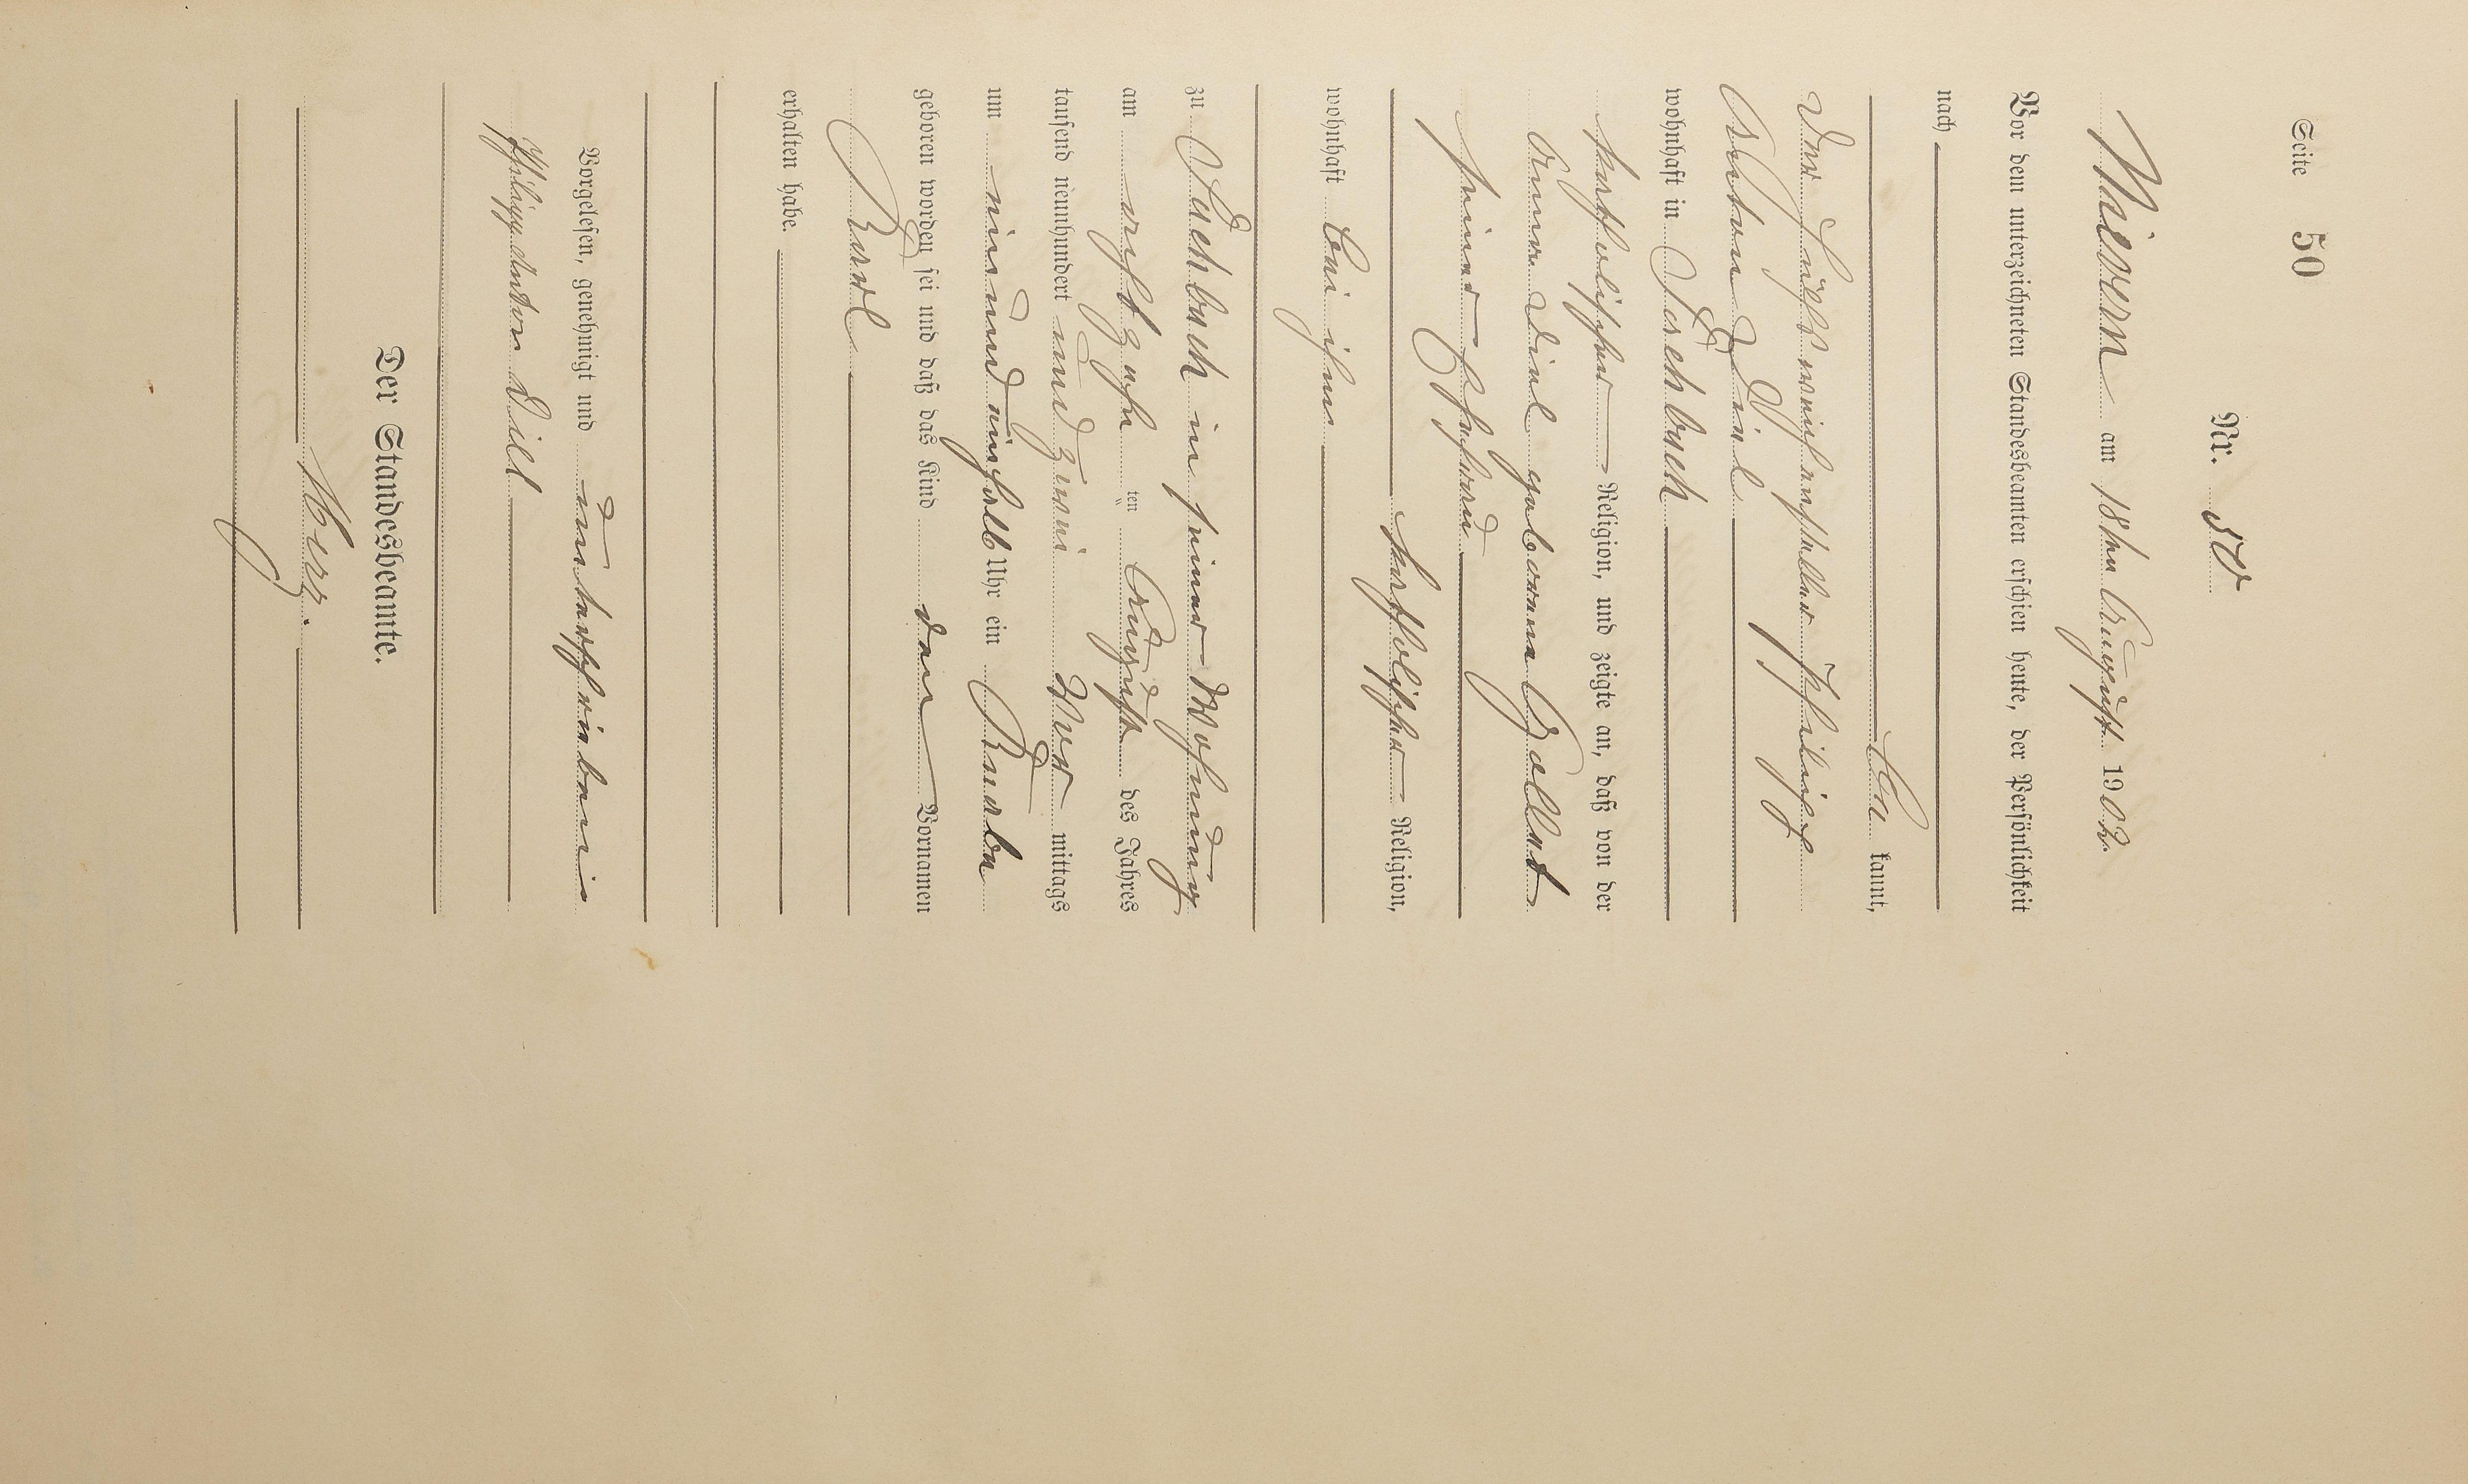 Seite 50
Nr. 50
Malborn am 18ten August 1902.
Vor dem unterzeichneten Standesbeamten erschien heute, der Persönlichkeit
nach
be kannt,
der Philipp
Anton Diel
wohnhaft in
katholischer Religion, und zeigte an, daß von der
Anna Diel geborene Gallert
seiner Ehefrau
katholischer Religion,
wohnhaft bei ihm
zu in seiner Wohnung
am achtzehn ten August des Jahres
tausend neunhundert und zwei Vor mittags
um neinundeinhalb Uhr ein Knabe
geboren worden sei und daß das Kind den Vornamen
Karl
erhalten habe.
Vorgelesen, genehmigt und unterschrieben
Philipp Anton Diel
Der Standesbeamte.